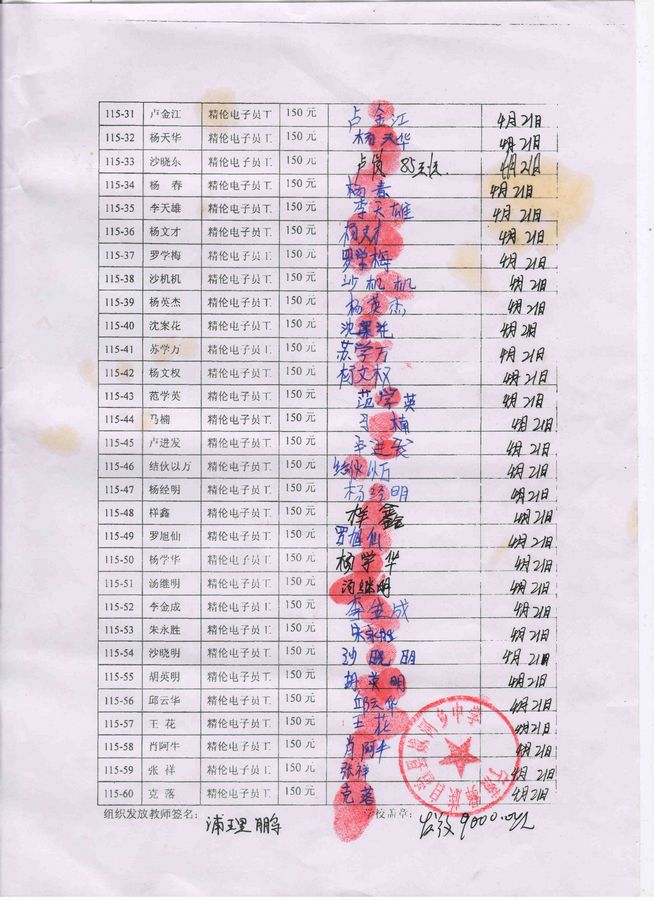 115-31 卢金江 精伦电子员工 150 元 卢金江 4月21日
115-32 杨天华 精伦电子员工 150 元 杨天华 4月21日
115-33 沙晓东 精伦电子员工 150 元 卢岚 4月21日
115-34 杨 春 精伦电子员工 150 元 杨春 4月21日
115-35 李天雄 精伦电子员工 150 元 李天雄 4月21日
115-36 杨文才 精伦电子员工 150 元 杨文才 4月21日
115-37 罗学梅 精伦电子员工 150 元 罗学梅 4月21日
115-38 沙机机 精伦电子员工 150 元 沙机机 4月21日
115-39 杨英杰 精伦电子员工 150 元 杨英杰 4月21日
115-40 沈案花 精伦电子员工 150 元 沈案花 4月21日
115-41 苏学万 精伦电子员工 150 元 苏学万 4月21日
115-42 杨文权 精伦电子员工 150 元 杨文权 4月21日
115-43 范学英 精伦电子员工 150 元 范学英 4月21日
115-44 马楠 精伦电子员工 150 元 马楠 4月21日
115-45 卢进发 精伦电子员工 150 元 卢进发 4月21日
115-46 结伙以万 精伦电子员工 150 元 结伙以万 4月21日
115-47 杨经明 精伦电子员工 150 元 杨经明 4月21日
115-48 样鑫 精伦电子员工 150 元 样鑫 4月21日
115-49 罗旭仙 精伦电子员工 150 元 罗旭仙 4月21日
115-50 杨学华 精伦电子员工 150 元 杨学华 4月21日
115-51 汤继明 精伦电子员工 150 元 汤继明 4月21日
115-52 李金成 精伦电子员工 150 元 李金成 4月21日
115-53 朱永胜 精伦电子员工 150 元 朱永胜 4月21日
115-54 沙晓明 精伦电子员工 150 元 沙晓明 4月21日
115-55 胡英明 精伦电子员工 150 元 胡英明 4月21日
115-56 邱云华 精伦电子员工 150 元 邱云华 4月21日
115-57 王 花 精伦电子员工 150 元 王花 4月21日
115-58 肖阿牛 精伦电子员工 150 元 肖阿牛 4月21日
115-59 张 祥 精伦电子员工 150 元 张祥 4月21日
115-60 克 落 精伦电子员工 150 元 克落 4月21日
组织发放教师签名： 浦理鹏 学校盖章： 9000.元